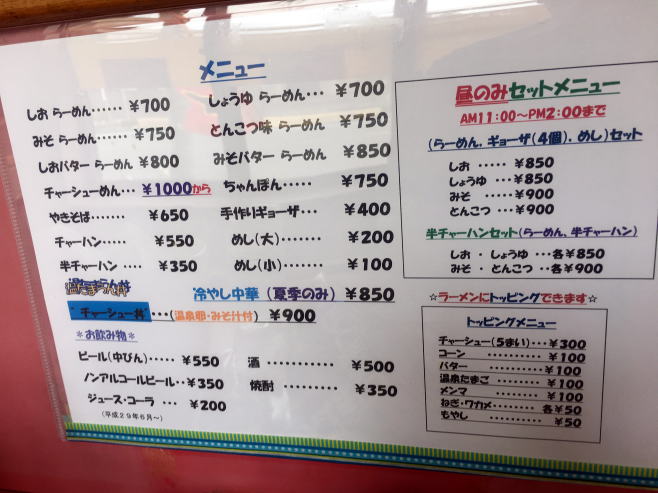 メニュー
しお らーめん…… ¥700
しょうゆ らーめん… ¥700
みそ らーめん…… ¥750
とんこつ味 らーめん ¥750
しおバター らーめん ¥800
みそバター らーめん ¥850
チャーシューめん… ¥1000から
ちゃんぽん…… ¥750
やきそば……. ¥650
手作りギョーザ… ¥400
チャーハン…… ¥550
めし(大)…….. ¥200
半チャーハン …. ¥350
めし(小)……. ¥100
冷やし中華(夏季のみ) ¥850
チャーシュー丼…(温泉卵・みそ汁付) ¥900
*お飲み物*
ビール(中びん)… ¥550
酒 ………… ¥500
ノンアルコールビール‥ ¥350
焼酎 ……… ¥350
ジュース・コーラ … ¥200
(平成29年6月~)
昼のみセットメニュー
AM11:00~PM2:00まで
(らーめん、ギョーザ(4個)、めし)セット
しお …‥ ¥850
しょうゆ … ¥850
みそ …‥ ¥900
とんこつ … ¥900
半チャーハンセット(らーめん、半チャーハン)
しお・しょうゆ …各¥850
みそ・とんこつ ‥各¥900
☆ラーメンにトッピングできます☆
トッピングメニュー
チャーシュー(うまい)… ¥300
コーン ………… ¥100
バター ………… ¥100
温泉たまご ……… ¥100
メンマ ………… ¥100
ねぎ・ワカメ…… 各¥50
もやし ………… ¥50